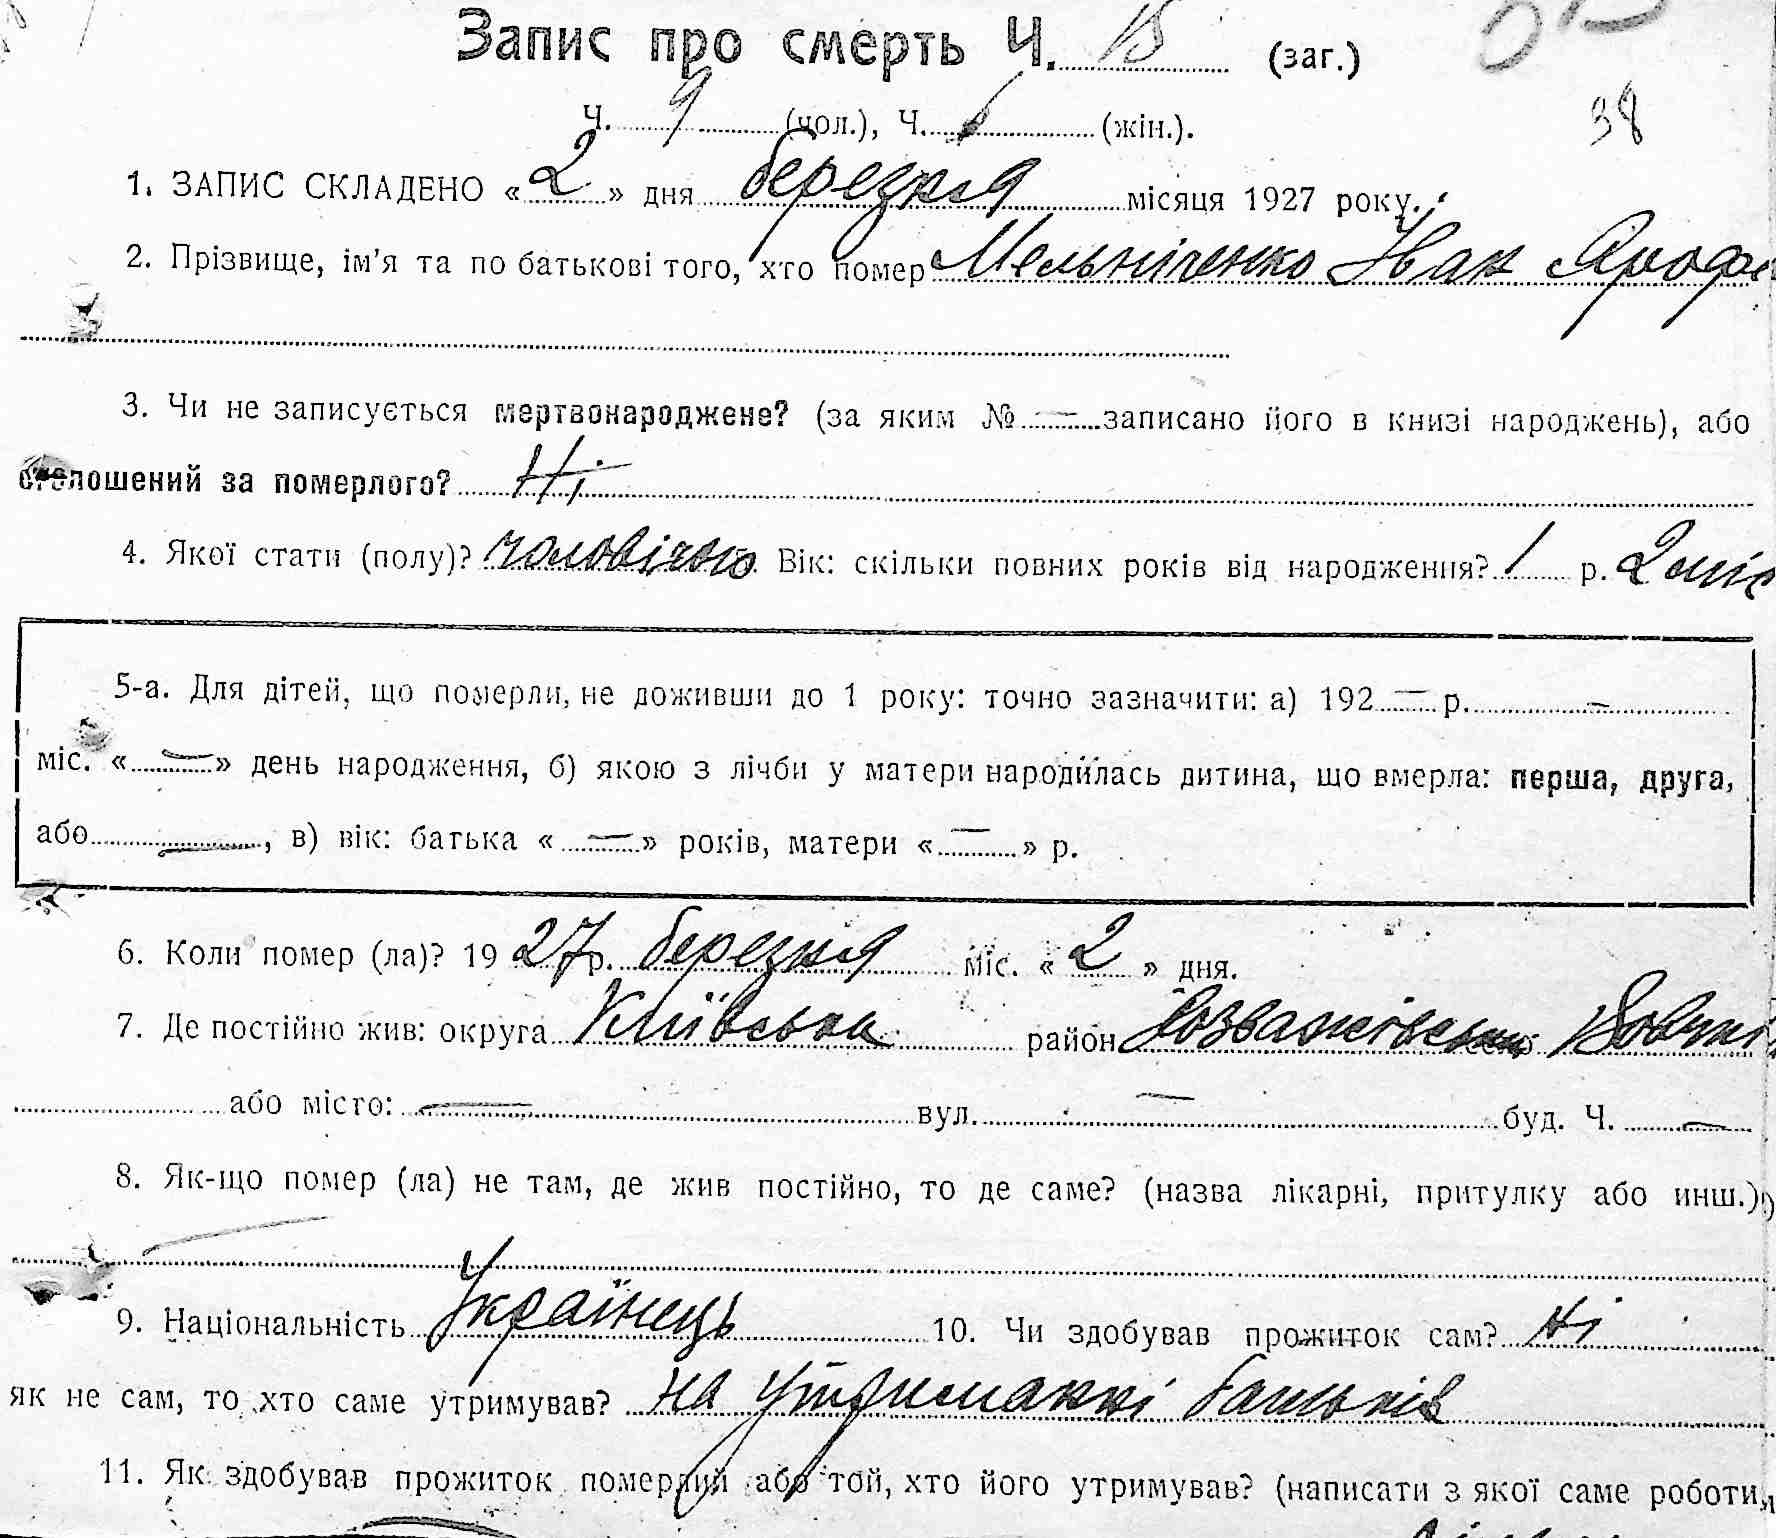 Запис про смерть Ч. 15 (заг.)
38
Ч. 9 (чол.), Ч. 6 (жін.).
1. ЗАПИС СКЛАДЕНО «2» дня березня місяця 1927 року.
2. Прізвище, ім'я та по батькові того, хто помер Мельніченко Іван
3. Чи не записується мертвонароджене? (за яким № — записано його в книзі народжень), або
оголошений за померлого? Ні
4. Якої стати (полу)? чоловічого Вік: скільки повних років від народження? 1 р. 2 міс
5-а. Для дітей, що померли, не доживши до 1 року: точно зазначити: а) 192 — р. —
міс. «—» день народження, б) якою з лічби у матери народилась дитина, що вмерла: перша, друга,
або —, в) вік: батька «—» років, матери «—» р.
6. Коли помер (ла)? 1927р. березня міс. «2» дня.
7. Де постійно жив: округа Київська район Розважівський
або місто: — вул. — буд. Ч. —
8. Як-що помер (ла) не там, де жив постійно, то де саме? (назва лікарні, притулку або инш.)
—
9. Національність Українець 10. Чи здобував прожиток сам? Ні
як не сам, то хто саме утримував? на утриманні батьків
11. Як здобував прожиток померлий або той, хто його утримував? (написати з якої саме роботи,